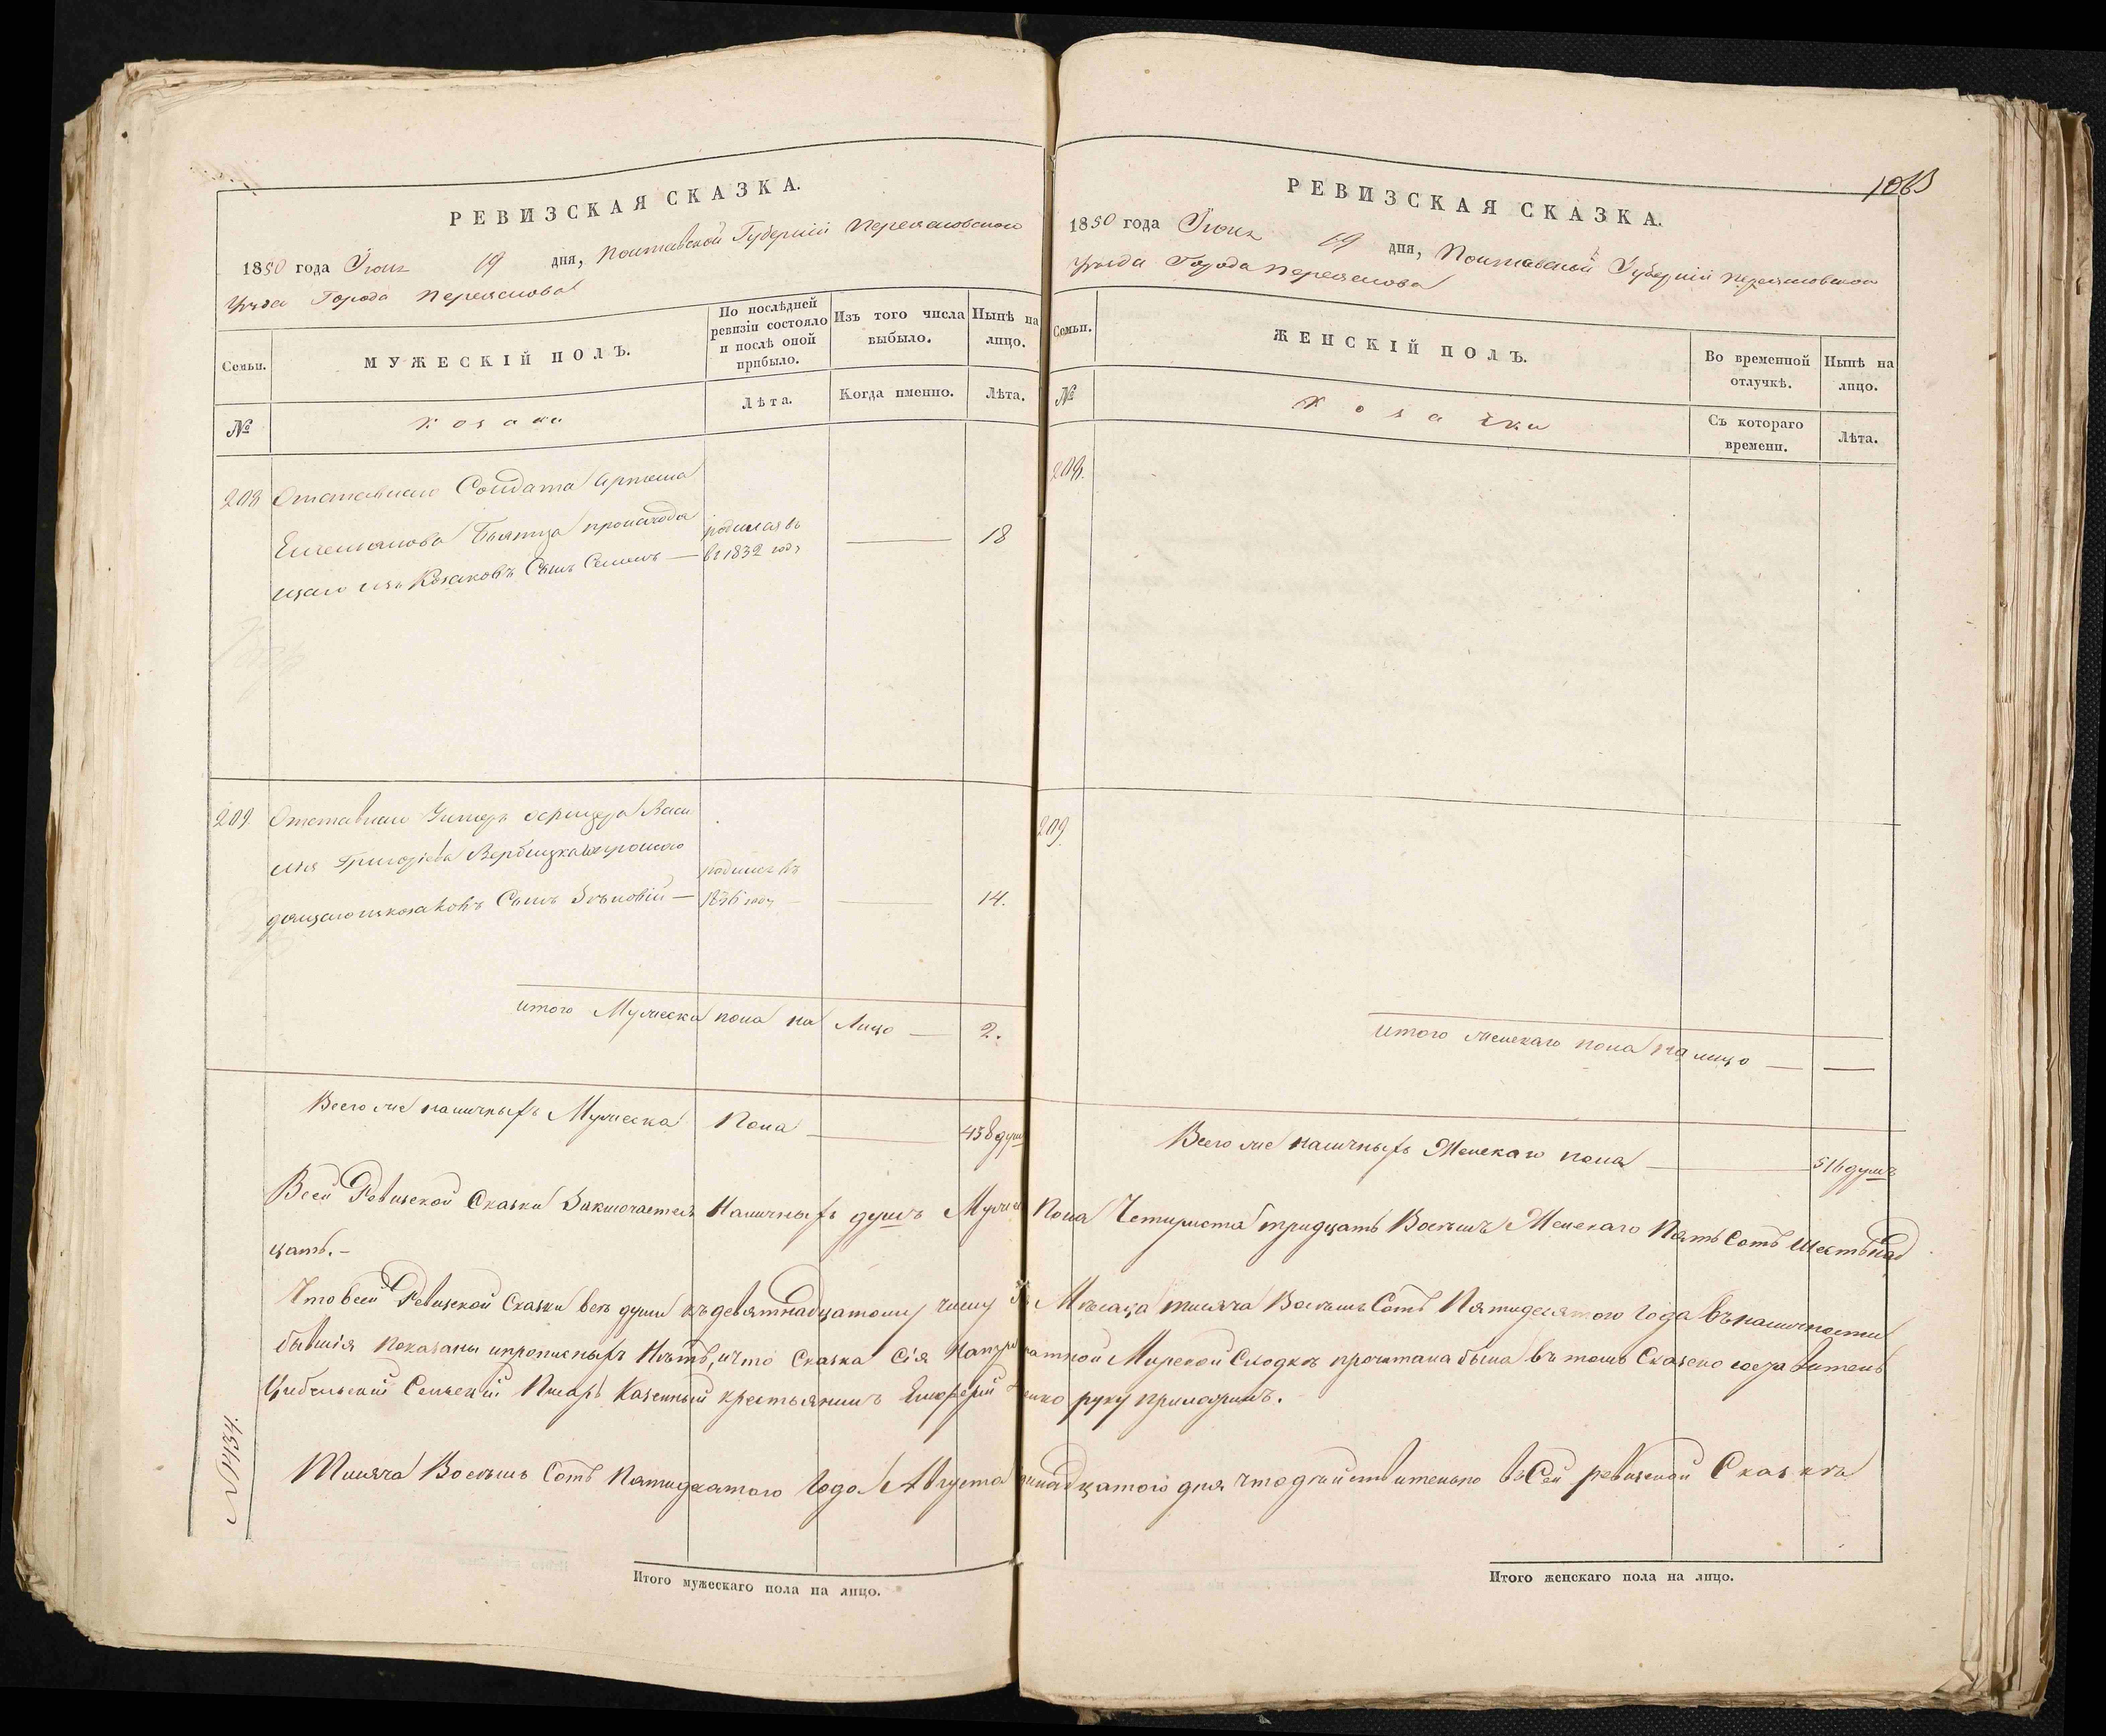 РЕВИЗСКАЯ СКАЗКА.
1850 года Июня 19 дня, Полтавской Губерніи Переяславскаго
Уѣзда Города Переяслова
Семьи.
МУЖЕСКІЙ ПОЛЪ.
По послѣдней
ревизіи состояло
и послѣ оной
прибыло.
Изъ того числа
выбыло.
Нынѣ на
лицо.
№
Козаки
Лѣта.
Когда именно.
Лѣта.
208 Отставнаго Солдата Артема
Емельянова происходя
щаго изъ Козаковъ Сынъ Семенъ —
родился въ
въ 1832 году
18
209. Отставнаго Унтеръ офицера Васи
лія Григорьева Вербицкаго происхо
дящаго изъ козаковъ Сынъ Зѣновій —
родился въ
1836 году
14.
итого Мужеска пола на лицо — 2.
Всего же наличныхъ Мужеска Пола — 438 душ
Всей Ревизской Сказки Заключается Наличныхъ душъ Мужес
цать.-
Что всей Ревизской Сказки всѣ души къ девятнадцатому числу
бывшія показаны и прописныхъ Нѣтъ, и что Сказка Сія
Сельскій Писарь Казенный крестьянинъ
Тысяча Восемь Сотъ Пятидесятого Года Августа
№ 1434.
Итого мужескаго пола на лицо.
РЕВИЗСКАЯ СКАЗКА.
1063
1850 года Июня 19 дня, Полтавской Губерніи Переясловскаго
Уѣзда Города Переяслова
Семьи.
ЖЕНСКІЙ ПОЛЪ.
Во временной
отлучкѣ.
Нынѣ на
лицо.
№
Козачки
Съ котораго
времени.
Лѣта.
208.
209
итого женскаго пола на лицо — —
Всего же наличныхъ Женскаго пола — 516 душъ
Пола Четыриста тридцать Восемь Женскаго Пять Сотъ Шестьнад
Мѣсяца тысяча Восемь Сотъ Пятидесятого Года въ наличности
Мирской Сходкѣ прочитана была въ томъ
руку приложилъ.
дня что действительно въ Сей ревизской Сказкѣ
Итого женскаго пола на лицо.